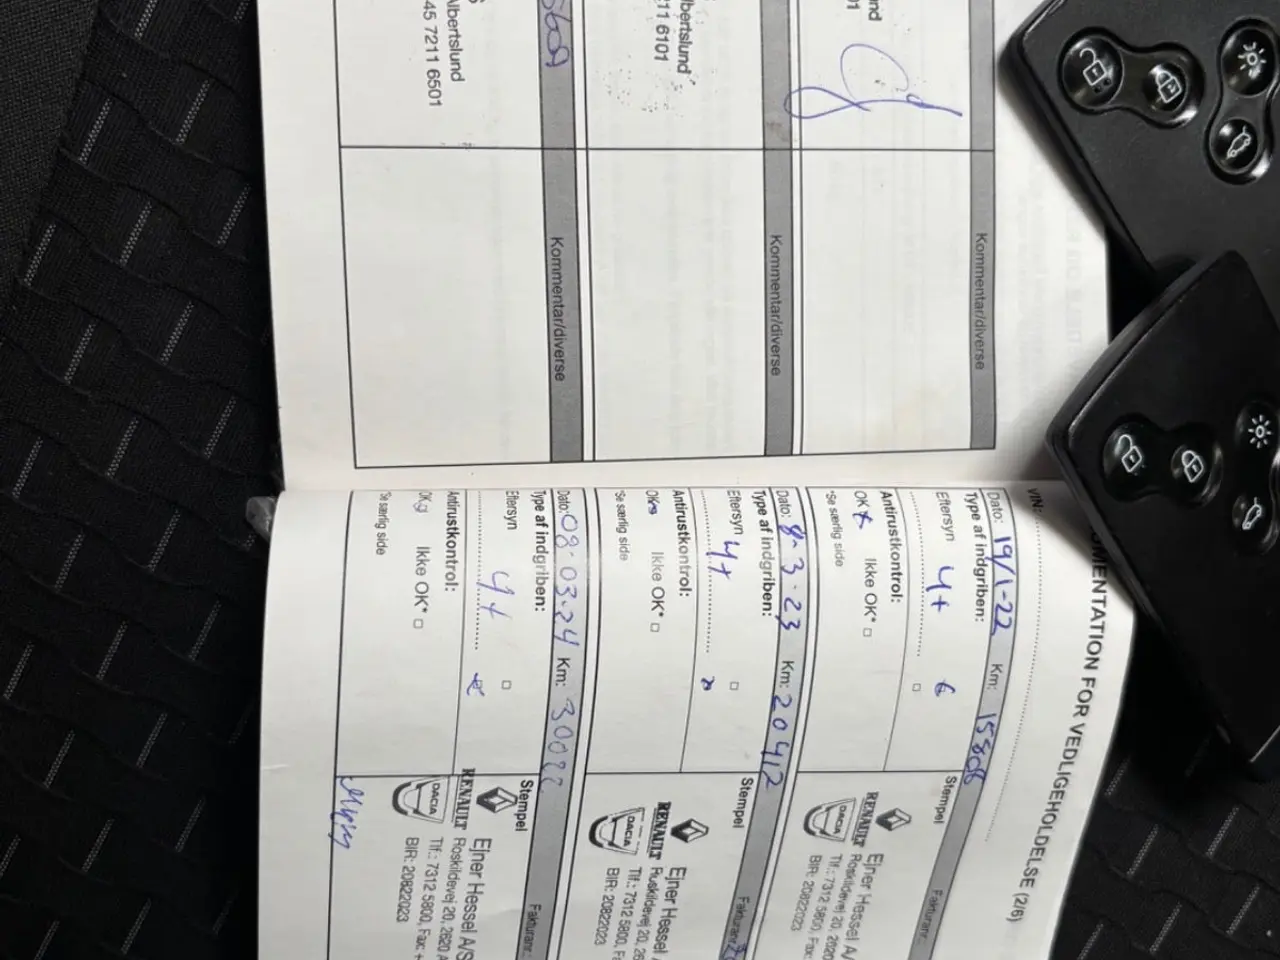 Albertslund
45 7211 6501
Kommentar/diverse
Albertslund
11 6101
Kommentar/diverse
Kommentar/diverse
VIN:
MENTATION FOR VEDLIGEHOLDELSE (2/6)
Dato: 19/1-22 Km: 15808
Type af indgriben:
Eftersyn 4+
Antirustkontrol:
OK Ikke OK*
*Se særlig side
Stempel
Fakturanr.:
RENAULT
DACIA
Ejner Hessel A/
Roskildevej 20, 2620
Tlf.: 7312 5800, Fax:
BIR: 20822023
Dato: 8-3-23 Km: 20412
Type af indgriben:
Eftersyn 4+
Antirustkontrol:
OK Ikke OK*
*Se særlig side
Stempel
Fakturanr.
RENAULT
DACIA
Ejner Hessel
Roskildevej 20, 26
Tlf.: 7312 5800, F
BIR: 20822023
Dato: 08.03.24 Km:
Type af indgriben:
Eftersyn 4+
Antirustkontrol:
OK Ikke OK*
*Se særlig side
Stempel
Fakturanr.:
RENAULT
DACIA
Ejner Hessel A/S
Roskildevej 20, 2620 A
Tlf.: 7312 5800, Fax: +
BIR: 20822023